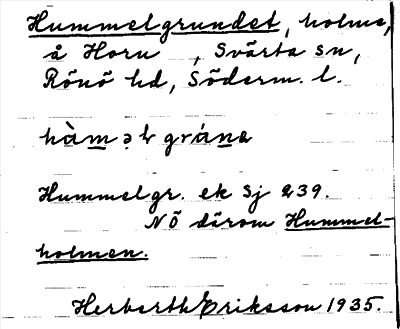 Hummelgrundet, holme,
å Horn , Svärta sn,
Rönö hd, Söderm. l.
Hummelgr. ek Sj 239.
NÖ därom Hummel-
holmen.
Herberth Eriksson 1935.